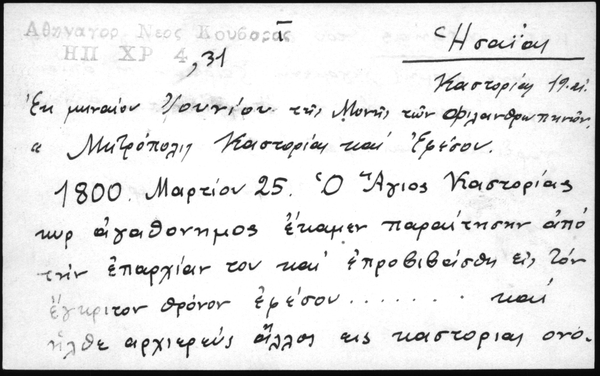 Αθηναγορ Νεος Κουβαρας
ΗΠ ΧΡ 4 ,31 Ι
Ἡσαΐας
Καστορίας 19 αἰ.
ἐκ μηναίου Ἰουνίου τῆς Μονῆς τῶν Φιλανθρωπηνῶν.
α Μητρόπολις Καστορίας καὶ Ἐφέσου.
1800. Μαρτίου 25. Ὁ Ἅγιος Καστορίας
κυρ ἀγαθόνημος ἔκαμεν παραίτησην ἀπό
τήν ἐπαρχίαν του καί ἐπροβιβάσθη εἰς τόν
ἔγκριτον θρόνον ἐφέσου ....... καί
ἦλθε ἀρχιερεύς ἄλλος εις καστορίας ονό-